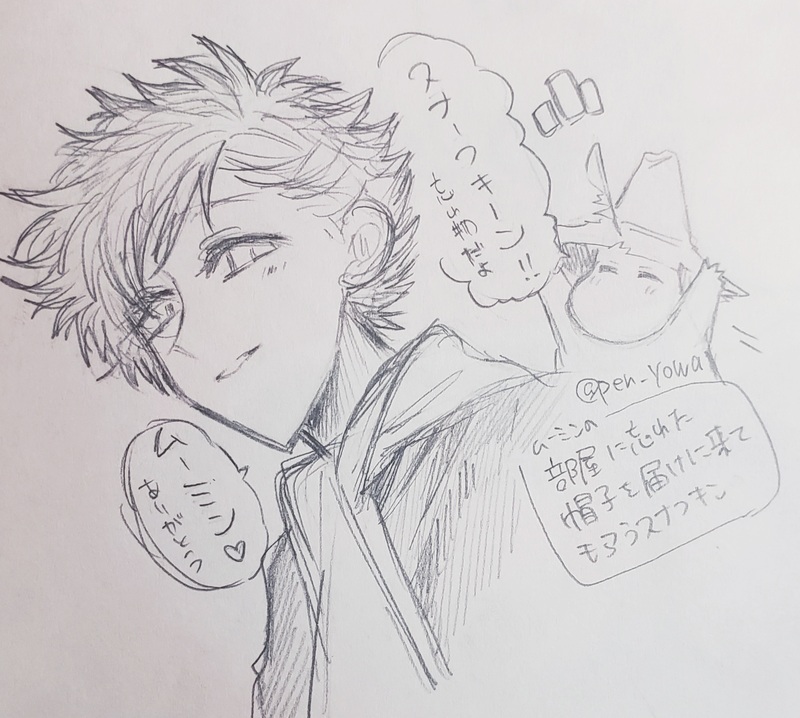 スナーフキーン!!
忘れ物だよ
@pen_yowa
ムーミンの
部屋に忘れた
帽子を届けに来て
もらうスナフキン
ムーミン
ありがとう♡